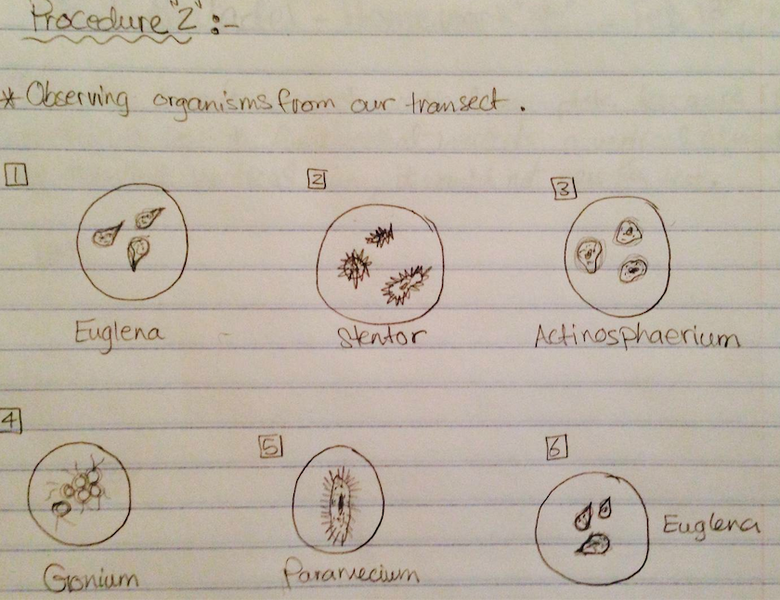 Procedure "2" :-
* Observing organisms from our transect.
1 2 3
Euglena Stentor Actinosphaerium
4 5 6
Euglena
Gonium Paramecium